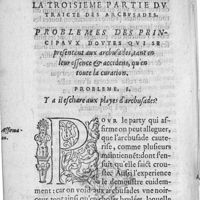 LA TROISIEME PARTIE DV
TRAICTE DES ARCBVSADES.
PROBLEMES DES PRIN-
CIPAVX DOVTES QVI SE
presentent aux arcbusades, tant en
leur essence & accidens, qu'en
toute la curation.
PROBLEME. I.
Y a il eschare aux playes d'arcbusades?
POVR le party qui af-
firme on peut alleguer,
que l'arcbusade caute-
rise, comme plusieurs
maintienẽt: dont fen-
fuit qu'elle faict crou-
ste. Aussi l'experience
le demonstre euidem-
ment: car on voit aux arcbusades vne noir-